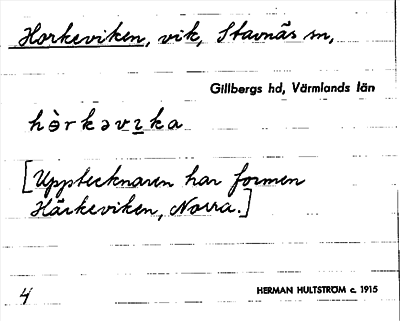 Horkeviken, vik, Stavnäs sn,
Gillbergs hd, Värmlands län
hɵ̀rkəvɪka
[Upptecknaren har formen
Härkeviken, Norra.]
4
HERMAN HULTSTRÖM c. 1915